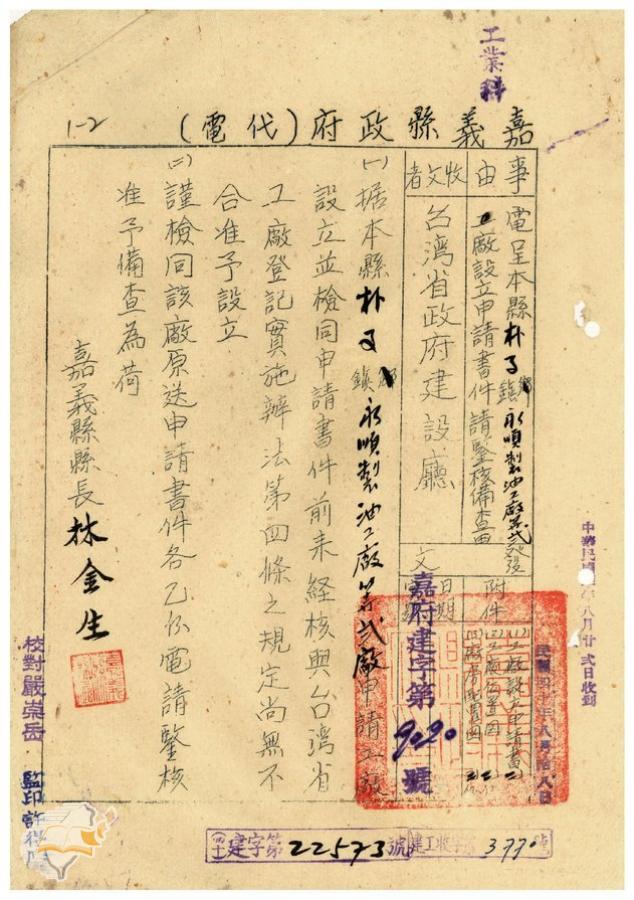 工業科
嘉義縣政府(代電)
1-2
事由
電呈本縣朴子鎮永順製油工廠第弍廠
工廠設立申請書件請鑒核備查由
收文者
台灣省政府建設廳
附件
(一)工廠設立申請書
(二)工廠位置圖
日期
文
嘉府建字第9090號
民國四十年八月拾八日
中華民國 年八月廿弍日收到
(一)据本縣朴子鎮永順製油工廠第弍廠申請工廠
設立並檢同申請書件前來經核與台灣省
工廠登記實施辦法第四條之規定尚無不
合准予設立
(二)謹檢同該廠原送申請書件各乙份電請鑒核
准予備查為荷
嘉義縣縣長林金生
校對嚴崇岳
監印許
建字第22573號
建工收字